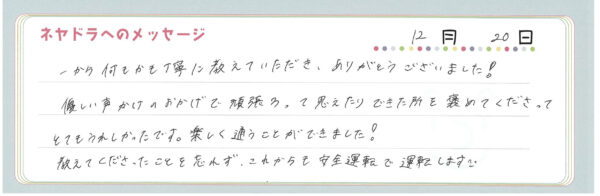 ネヤドラへのメッセージ
12月 20日
一から何もかも丁寧に教えていただき、ありがとうございました!
優しい声かけのおかげで頑張ろって思えたりできた所を褒めてくださって
とてもうれしかったです。楽しく通うことができました!
教えてくださったことを忘れず、これからも安全運転で運転します